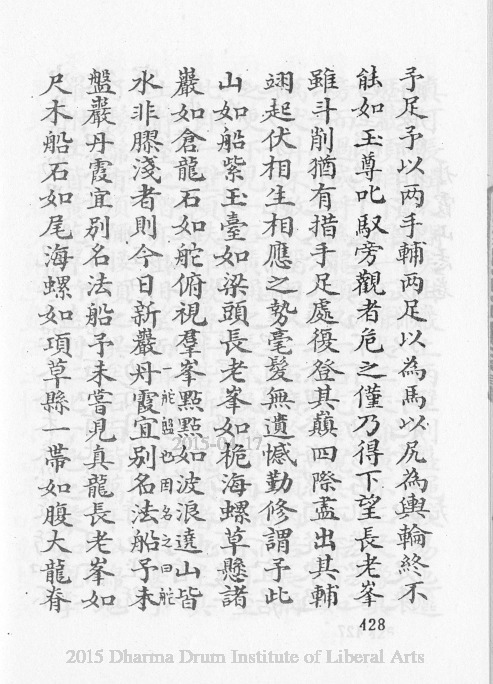 予足予以两手輔两足以為馬以尻為輿輪終不
能如玉尊叱馭旁觀者危之僅乃得下望長老峯
雖斗削猶有措手足處復登其巔四際盡出其輔
翊起伏相生相應之勢毫髮無遺憾勤修謂予此
山如船紫玉臺如梁頭長老峯如桅海螺草懸諸
巖如倉龍石如舵俯視羣峯點點如波浪遶山皆
水非膠淺者則今日新巖丹霞宜别名法船予未
一舵盤也因名之曰舵
盤巖丹霞宜别名法船予未嘗見真龍長老峯如
尺木船石如尾海螺如項草縣一帶如腹大龍脊
428
2015-04-17
2015 Dharma Drum Institute of Liberal Arts